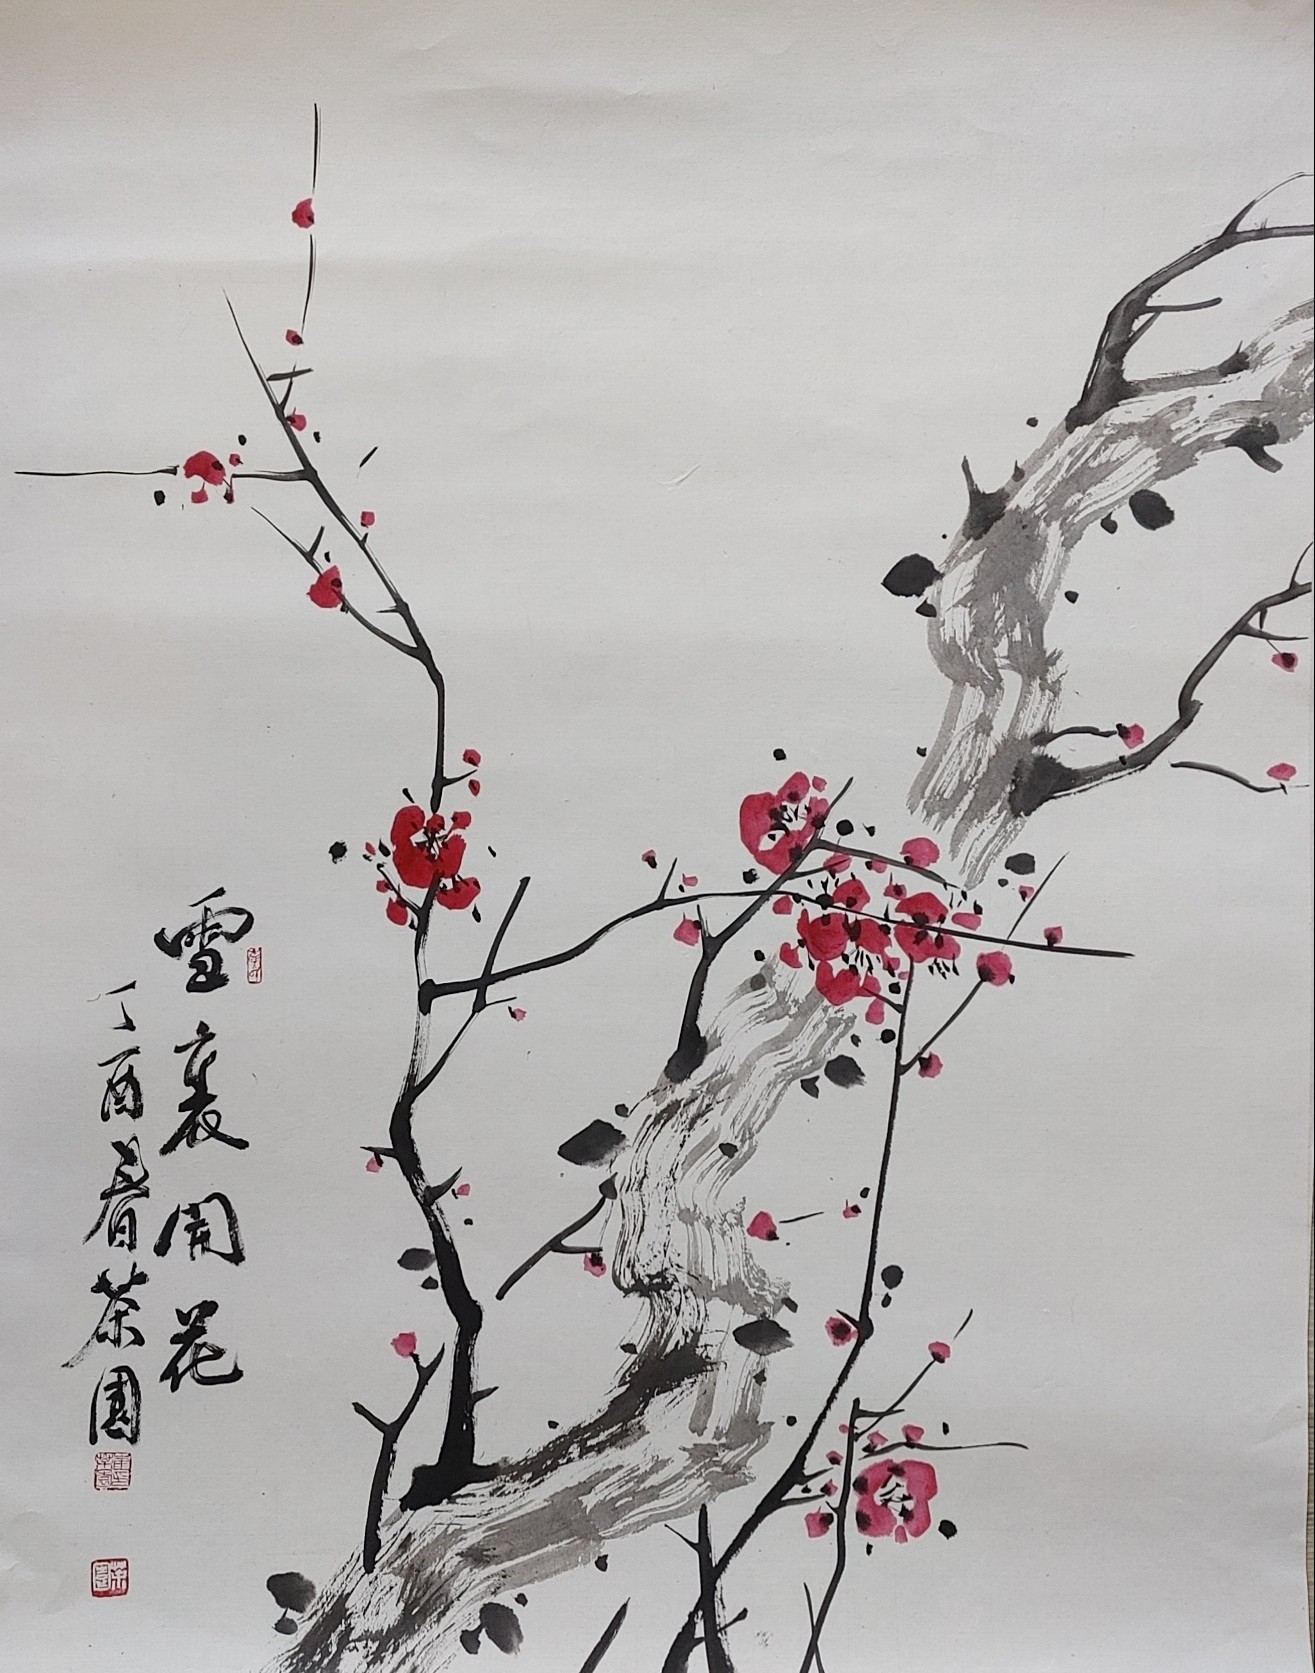 雪裏開花
丁酉春茶園